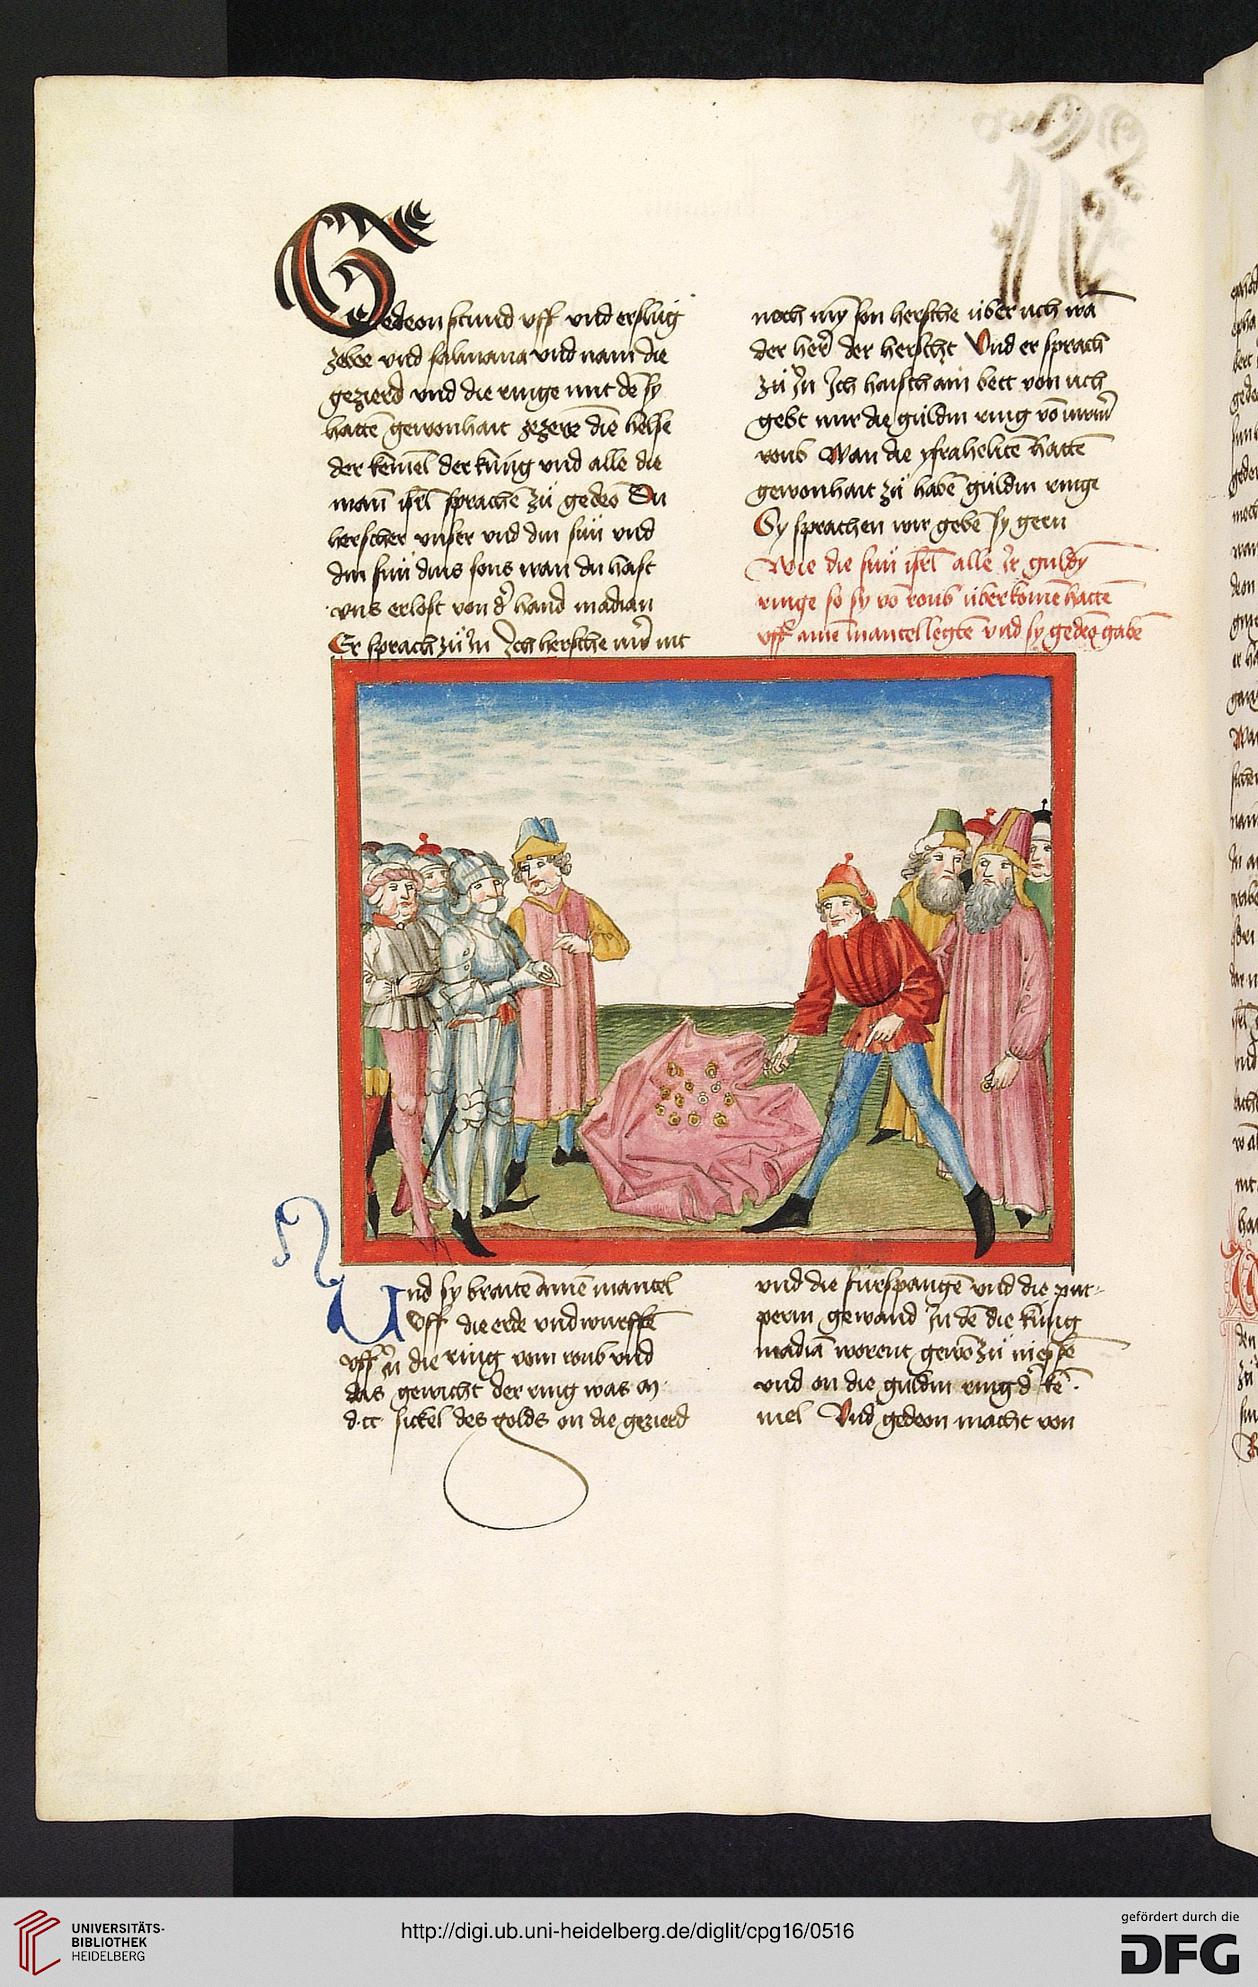 Gedeon stund vff vnd erslůg
zebee vnd salmana vnd nam die
gezierd vnd die ringe mit dē sy
hattē gewonhait zezierē die helse
der kemel der küng vnd alle die
man isrl sprachē zů gedeō Du
herscher vnser vnd din sun vnd
din sun dins sons wan du hast
vns erlost von dˀ hand madian
Er sprach zů Jn Jch hersche nit
noch my son hersche über uch wā
der herˀ der herscht Vnd er sprach
zů Jn Jch haisch ain bett von uch
gebt mir die guldin ring vō uwerm
roub Wan die ysrahelitē hattē
gewonhait zů habē guldin ringe
Sy sprachen wir gebē sy gern
Wie die sun isrl alle Jr guldy
ringe so sy vō roub überkomē hattē
vff ainē mantel legtē vnd sy gedeō gabē
Vnd sy braitē ainē mantel
Vff die erde vnd wurffē
vff Jn die ring vom roub vnd
das gewicht der ring was m
d cc sickel des golds on die gezierd
vnd die fürspangē vnd die pur-
perin gewand Jn dē die küng
madiā worent gewō zů niessē
vnd on die guldin ring dˀ ke-
mel Vnd gedeon macht von
UNIVERSITÄTS-
BIBLIOTHEK
HEIDELBERG
http://digi.ub.uni-heidelberg.de/diglit/cpg16/0516
gefördert durch die
DFG